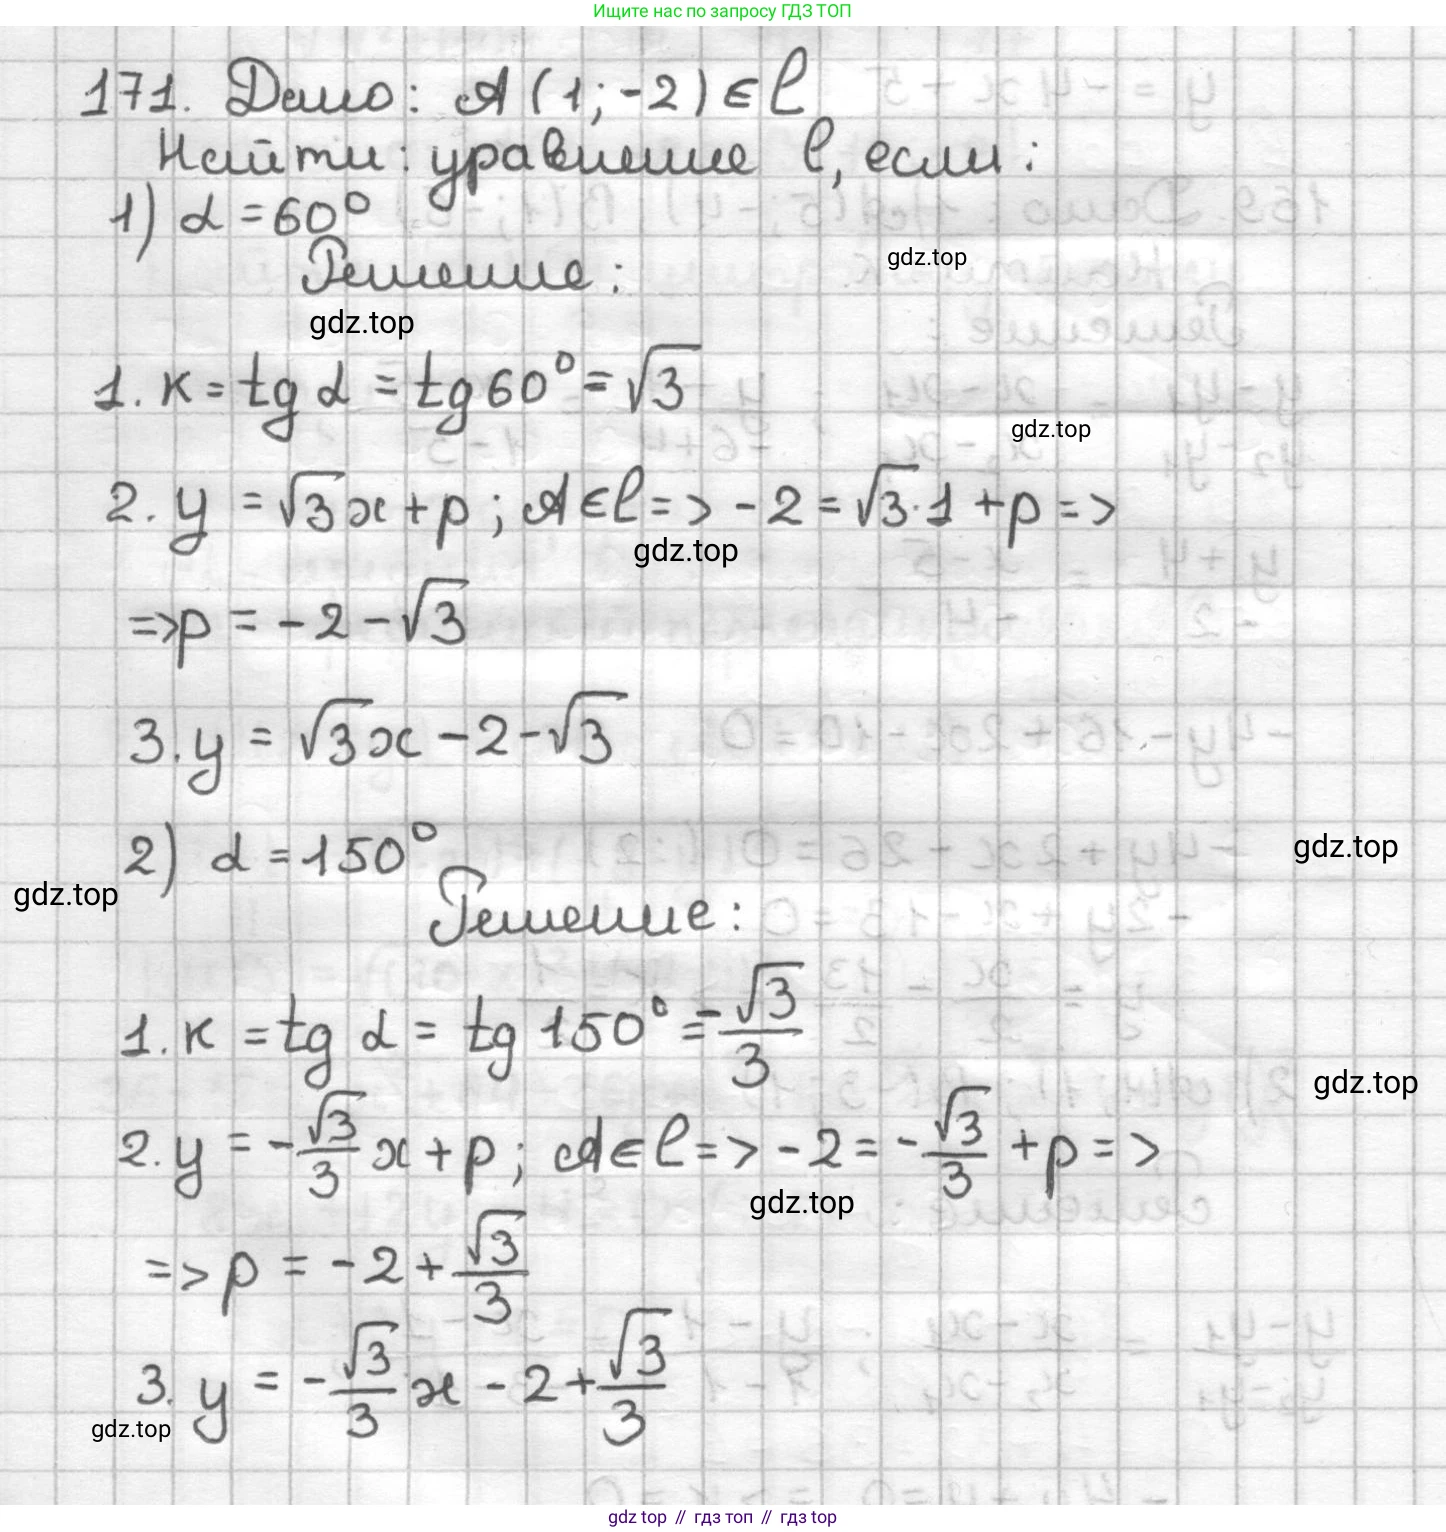 Ищите нас по запросу ГДЗ ТОП
171. Дано: A(1;-2) ∈ l
Найти: уравнение l, если:
1) α = 60°
gdz.top
Решение:
gdz.top
1. к = tg α = tg 60° = √3
gdz.top
2. y = √3x + p ; A ∈ l => -2 = √3·1 + p =>
gdz.top
=> p = -2 - √3
3. y = √3x - 2 - √3
2) α = 150°
gdz.top
gdz.top
Решение:
1. к = tg α = tg 150° = -√3/3
gdz.top
2. y = -√3/3 x + p ; A ∈ l => -2 = -√3/3 + p =>
gdz.top
=> p = -2 + √3/3
3. y = -√3/3 x - 2 + √3/3
gdz.top
gdz top // гдз топ // gdz top